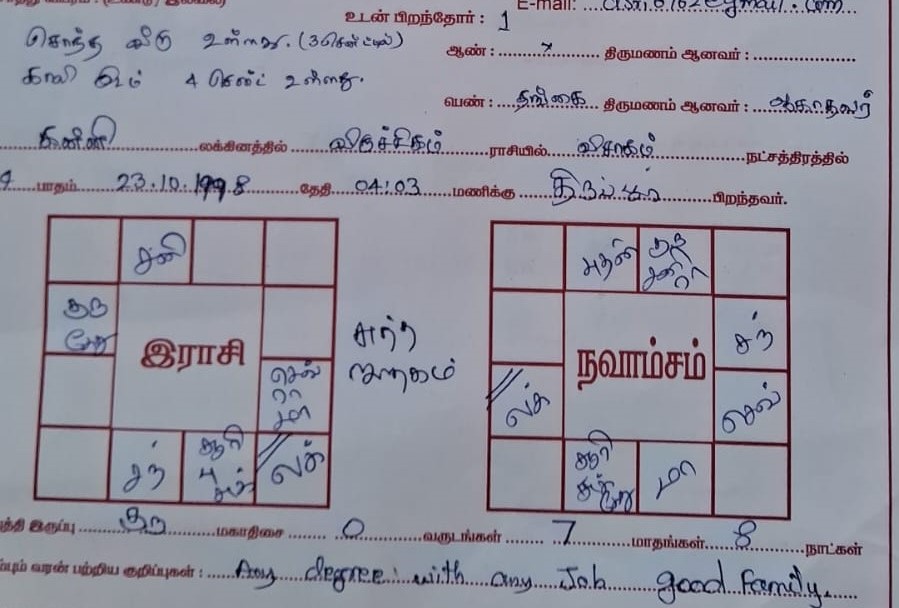 E-mail:
உடன் பிறந்தோர் : 1
சொந்த வீடு உள்ளது. (3 சென்ட்டில்)
ஆண் : x திருமணம் ஆனவர் :
காலி இடம் 4 சென்ட் உள்ளது.
பெண் : தங்கை திருமணம் ஆனவர் : ஆகாதவர்
கன்னி லக்கினத்தில் விருச்சிகம் ராசியில் விசாகம் நட்சத்திரத்தில்
4 பாதம் 23.10.1998 தேதி 04:03 மணிக்கு பிறந்தவர்.
சனி
குரு
கேது
இராசி
செவ்
ரா
மா
சந்
சூரி
பு
சுக்
லக்
ஜாதகம்
புதன்
குரு
சனி
ரா
நவாம்சம்
சந்
லக்
செவ்
சூரி
சுக்
கேது
மா
இருப்பு குரு மகாதிசை 0 வருடங்கள் 7 மாதங்கள் 8 நாட்கள்
வரன் பற்றிய குறிப்புகள் : Any degree with any Job good family.